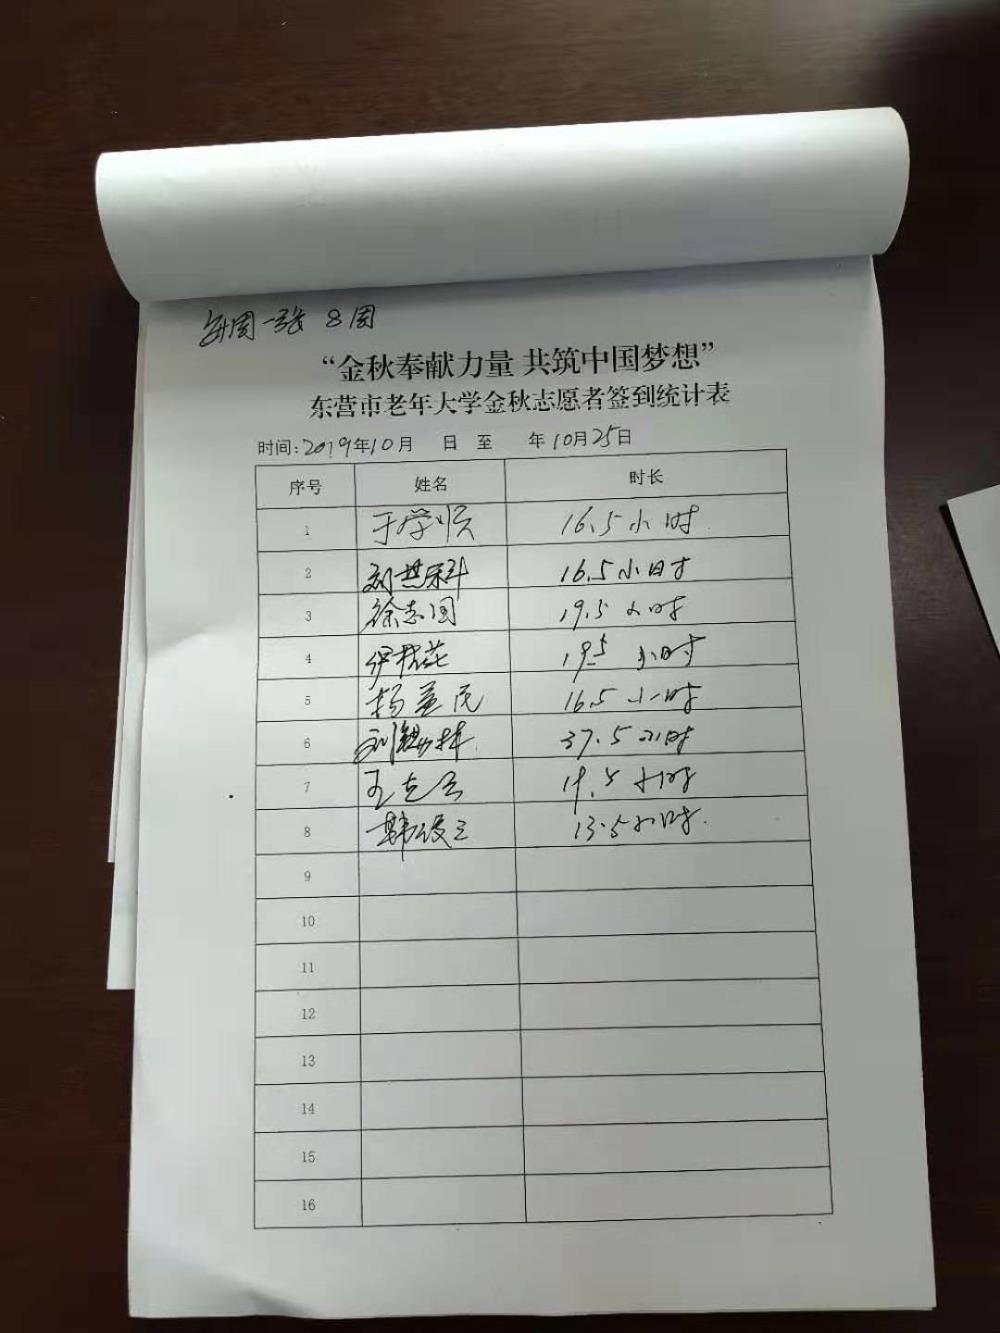 每周一张 8周
“金秋奉献力量 共筑中国梦想”
东营市老年大学金秋志愿者签到统计表
时间:2019年10月 日 至 年10月25日
序号 姓名 时长
1 于学顺 16.5小时
2 16.5小时
3 徐志国 19.5小时
4 伊桂花 19.5小时
5 杨 16.5小时
6 37.5小时
7 王 19.5小时
8 韩俊三 13.5小时
9
10
11
12
13
14
15
16